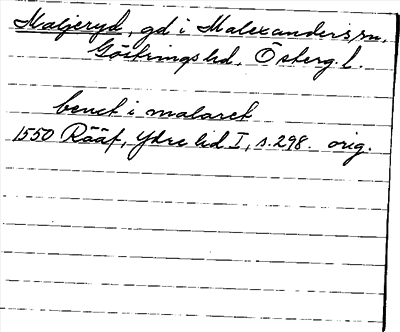 Maljeryd, gd i Malexanders sn,
Göstrings hd. Österg. l.
benct i malaret
1550 Rääf, Ydre hd I, s. 298. orig.